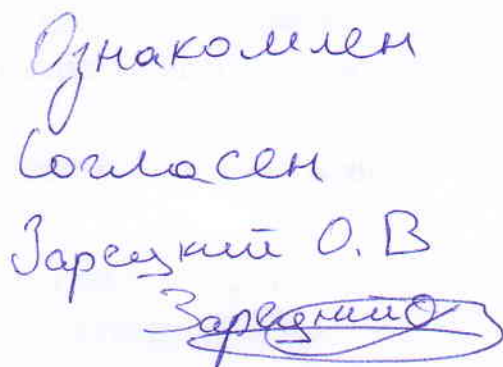 Ознакомлен
Согласен
Зарецкий О. В
Зарецкий О